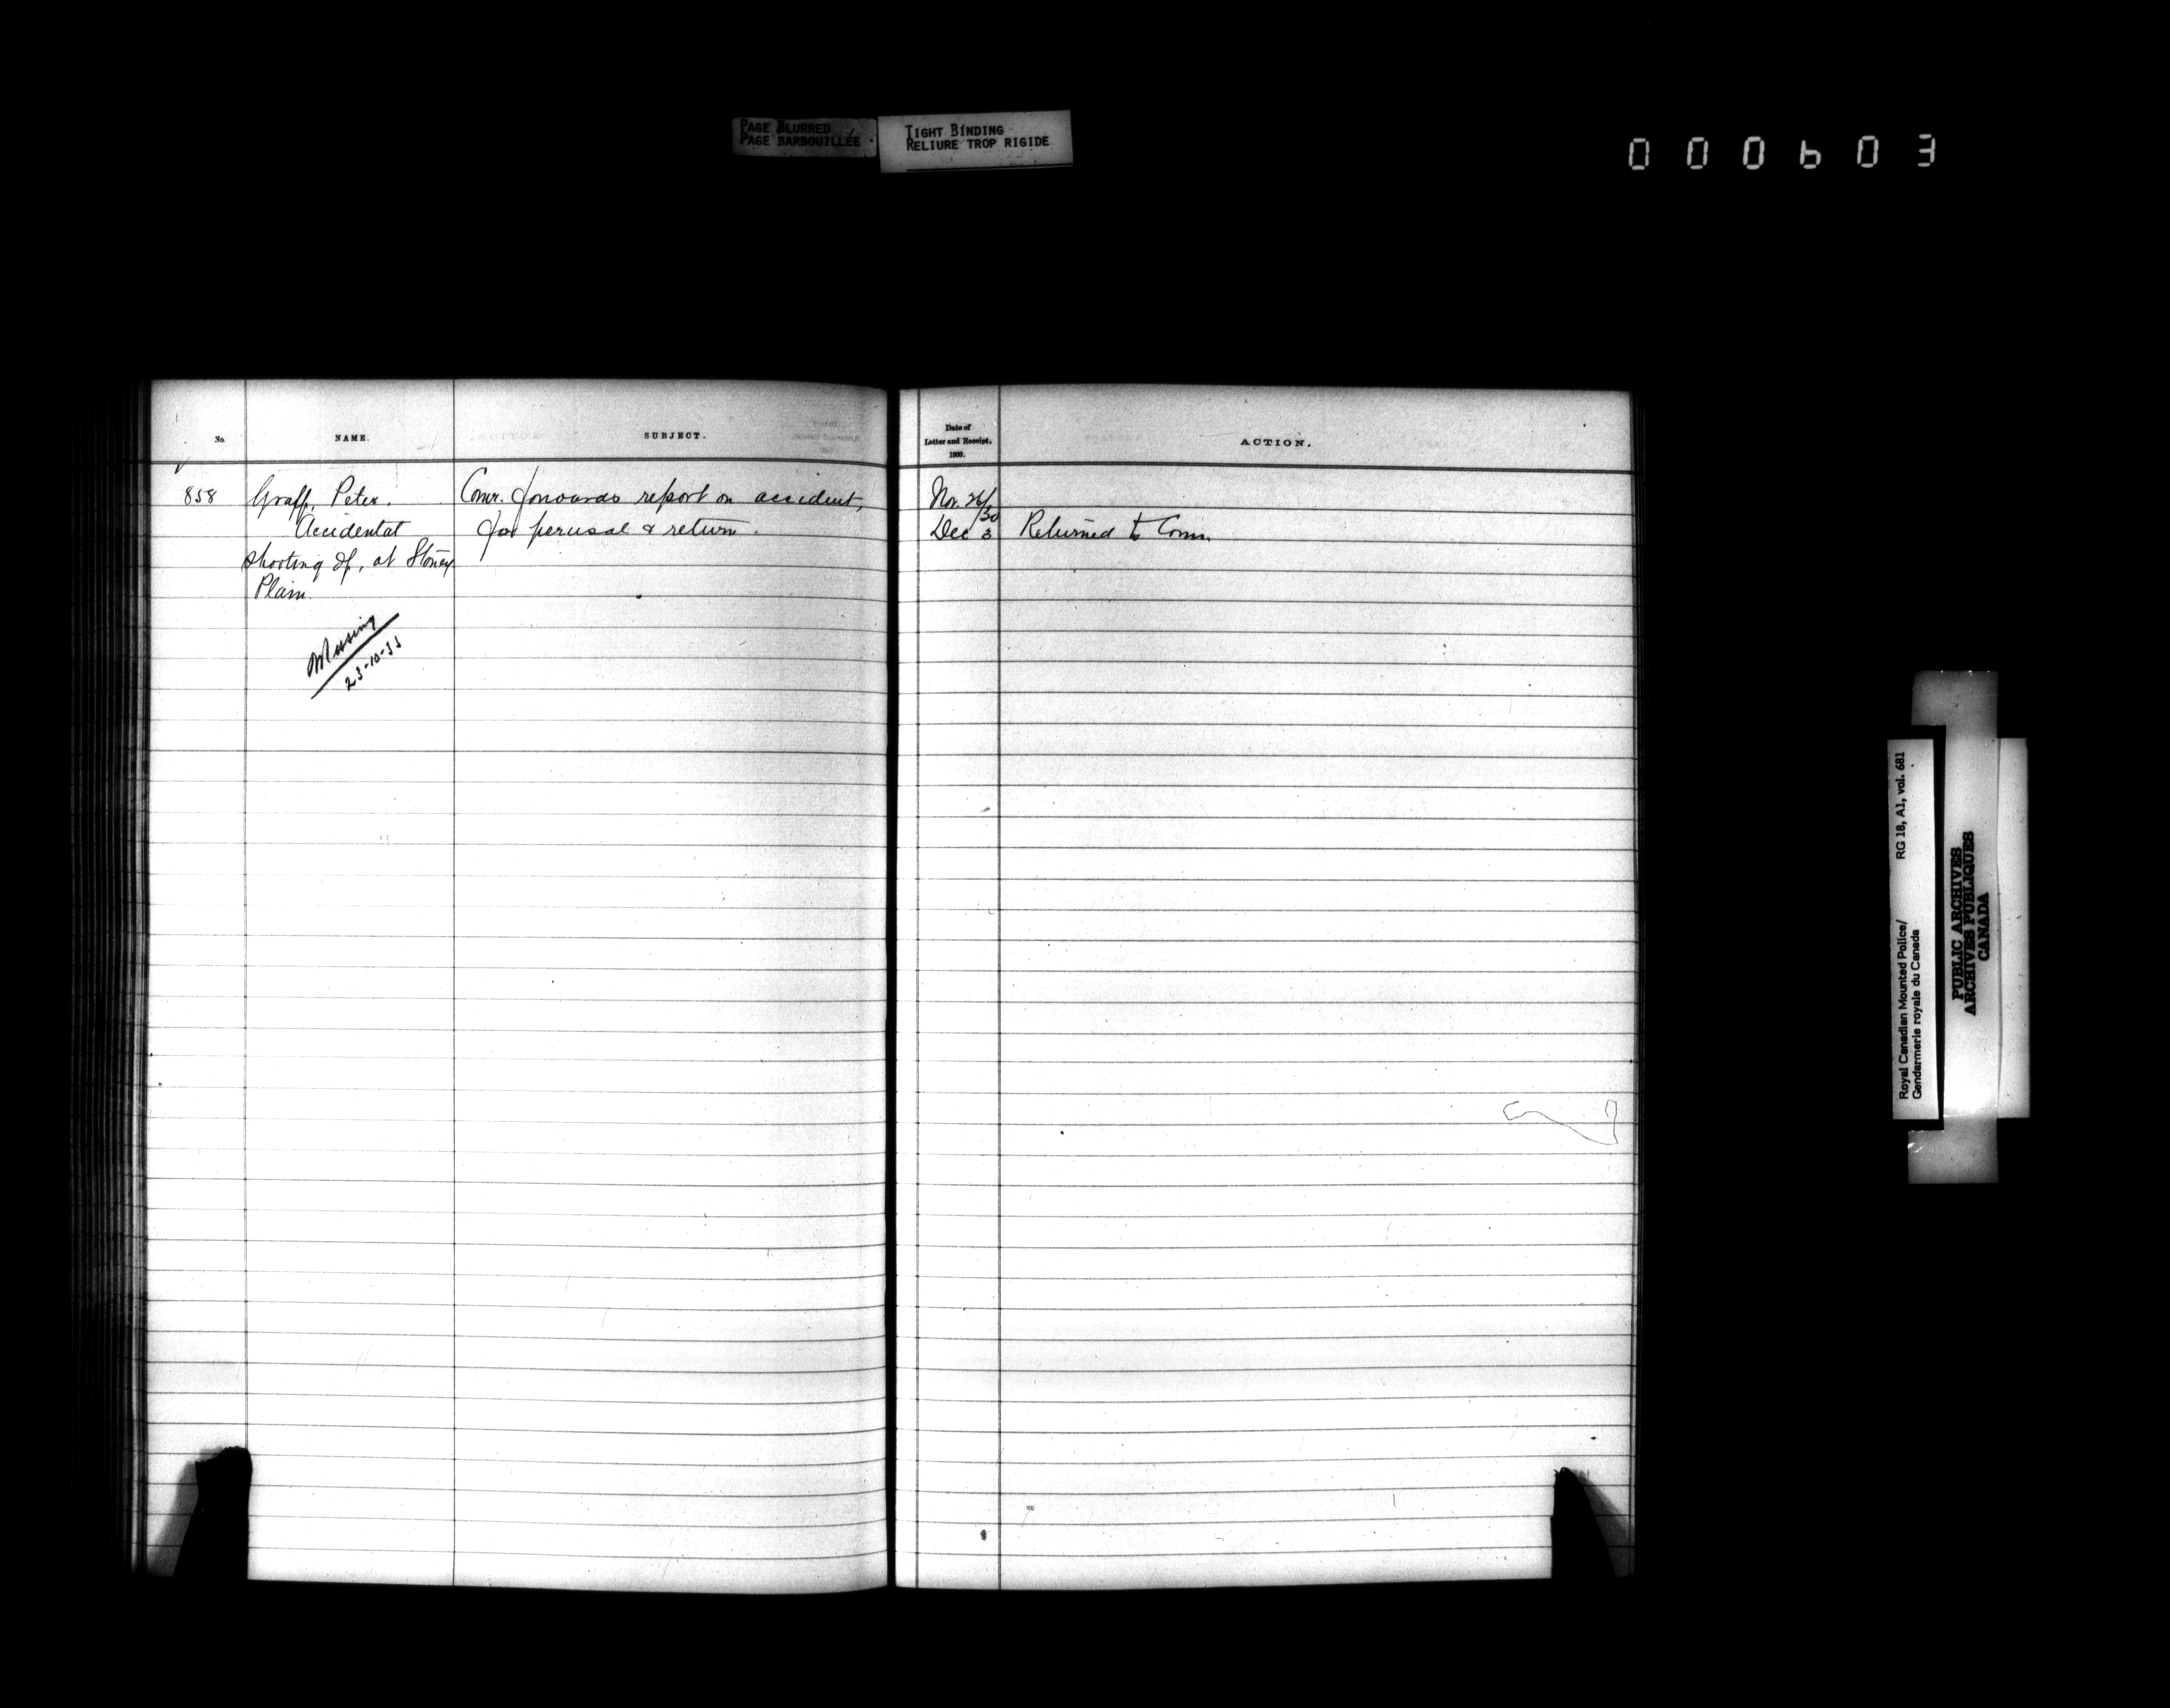 PAGE BLURRED
PAGE BARBOUILLÉE
TIGHT BINDING
RELIURE TROP RIGIDE
000603
No.
NAME.
SUBJECT.
Date of
Letter and Receipt,
1900.
ACTION.
858
Graff, Peter.
Accidental
shooting of, at Stoney
Plain.
Missing
23-10-33
Comr. forwards report on accident,
for perusal & return.
Nov. 26/30
Dec 3
Returned to Comr.
Royal Canadian Mounted Police/ RG 18, A1, vol. 681
Gendarmerie royale du Canada
PUBLIC ARCHIVES
ARCHIVES PUBLIQUES
CANADA